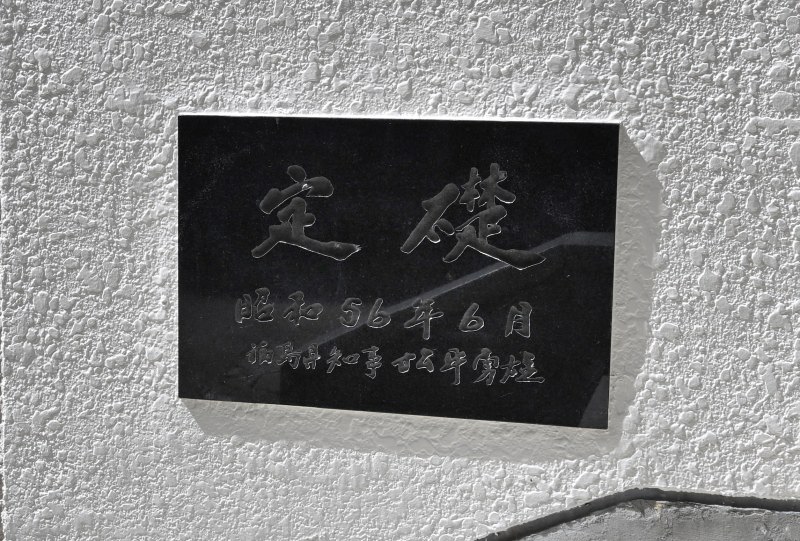 定礎
昭和56年6月
福島県知事 松平勇雄